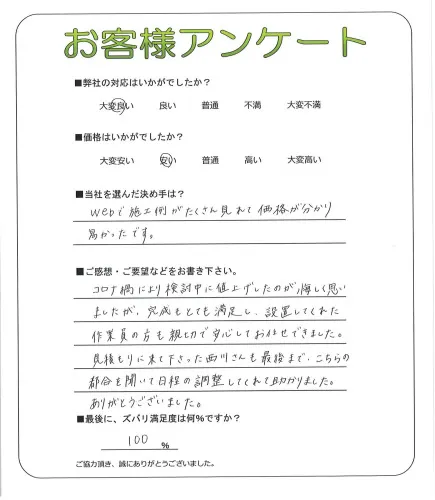 お客様アンケート
■弊社の対応はいかがでしたか？
大変良い 良い 普通 不満 大変不満
■価格はいかがでしたか？
大変安い 安い 普通 高い 大変高い
■当社を選んだ決め手は？
webで施工例がたくさん見れて価格が分かり
易かったです。
■ご感想・ご要望などをお書き下さい。
コロナ禍により検討中に値上げしたのが悔しく思い
ましたが、完成もとても満足し、設置してくれた
作業員の方も親切で安心してお任せできました。
見積もりに来て下さった西川さんも最後まで、こちらの
都合を聞いて日程の調整してくれて助かりました。
ありがとうございました。
■最後に、ズバリ満足度は何%ですか？
100 %
ご協力頂き、誠にありがとうございました。